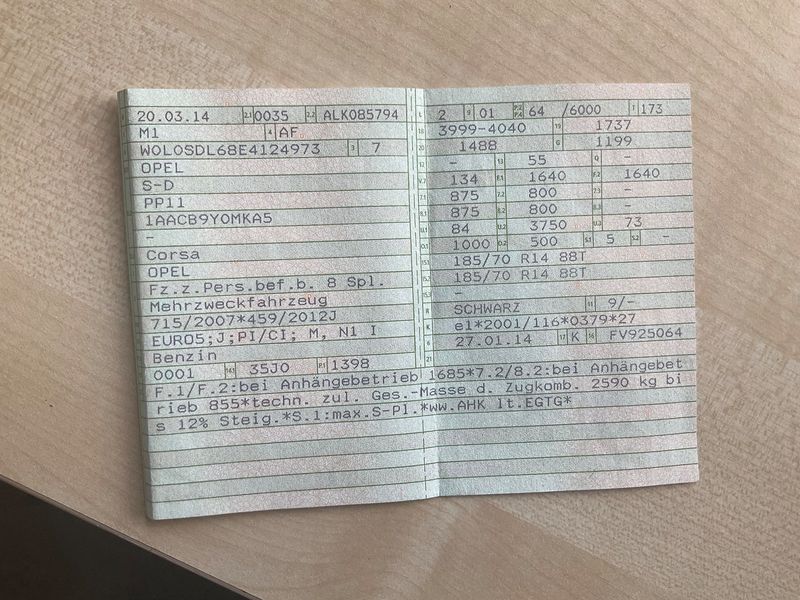 20.03.14 2.1 0035 2.2 ALK085794
M1 4 AF
WOLOSDL68E4124973 3 7
OPEL
S-D
PP11
1AACB9YOMKA5
–
Corsa
OPEL
Fz.z.Pers.bef.b. 8 Spl.
Mehrzweckfahrzeug
715/2007*459/2012J
EURO5;J;PI/CI; M, N1 I
Benzin
0001 14.1 35J0 P.1 1398
L 2 9 01 P.2 P.4 64 /6000 T 173
18 3999-4040 19 1737
20 1488 G 1199
12 – 13 55 Q –
V.7 134 F.1 1640 F.2 1640
7.1 875 7.2 800 7.3 –
8.1 875 8.2 800 8.3 –
U.1 84 U.2 3750 U.3 73
O.1 1000 O.2 500 S.1 5 S.2 –
15.1 185/70 R14 88T
15.2 185/70 R14 88T
15.3 –
R SCHWARZ 11 9/–
K e1*2001/116*0379*27
6 27.01.14 17 K 16 FV925064
21
F.1/F.2:bei Anhängebetrieb 1685*7.2/8.2:bei Anhängebet
rieb 855*techn. zul. Ges.-Masse d. Zugkomb. 2590 kg bi
s 12% Steig.*S.1:max.S-Pl.*ww.AHK lt.EGTG*